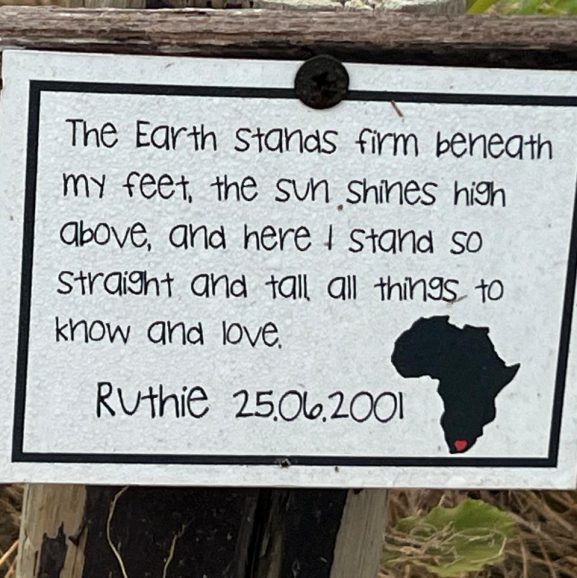 The Earth stands firm beneath
my feet, the sun shines high
above, and here I stand so
straight and tall, all things to
know and love.
Ruthie 25.06.2001